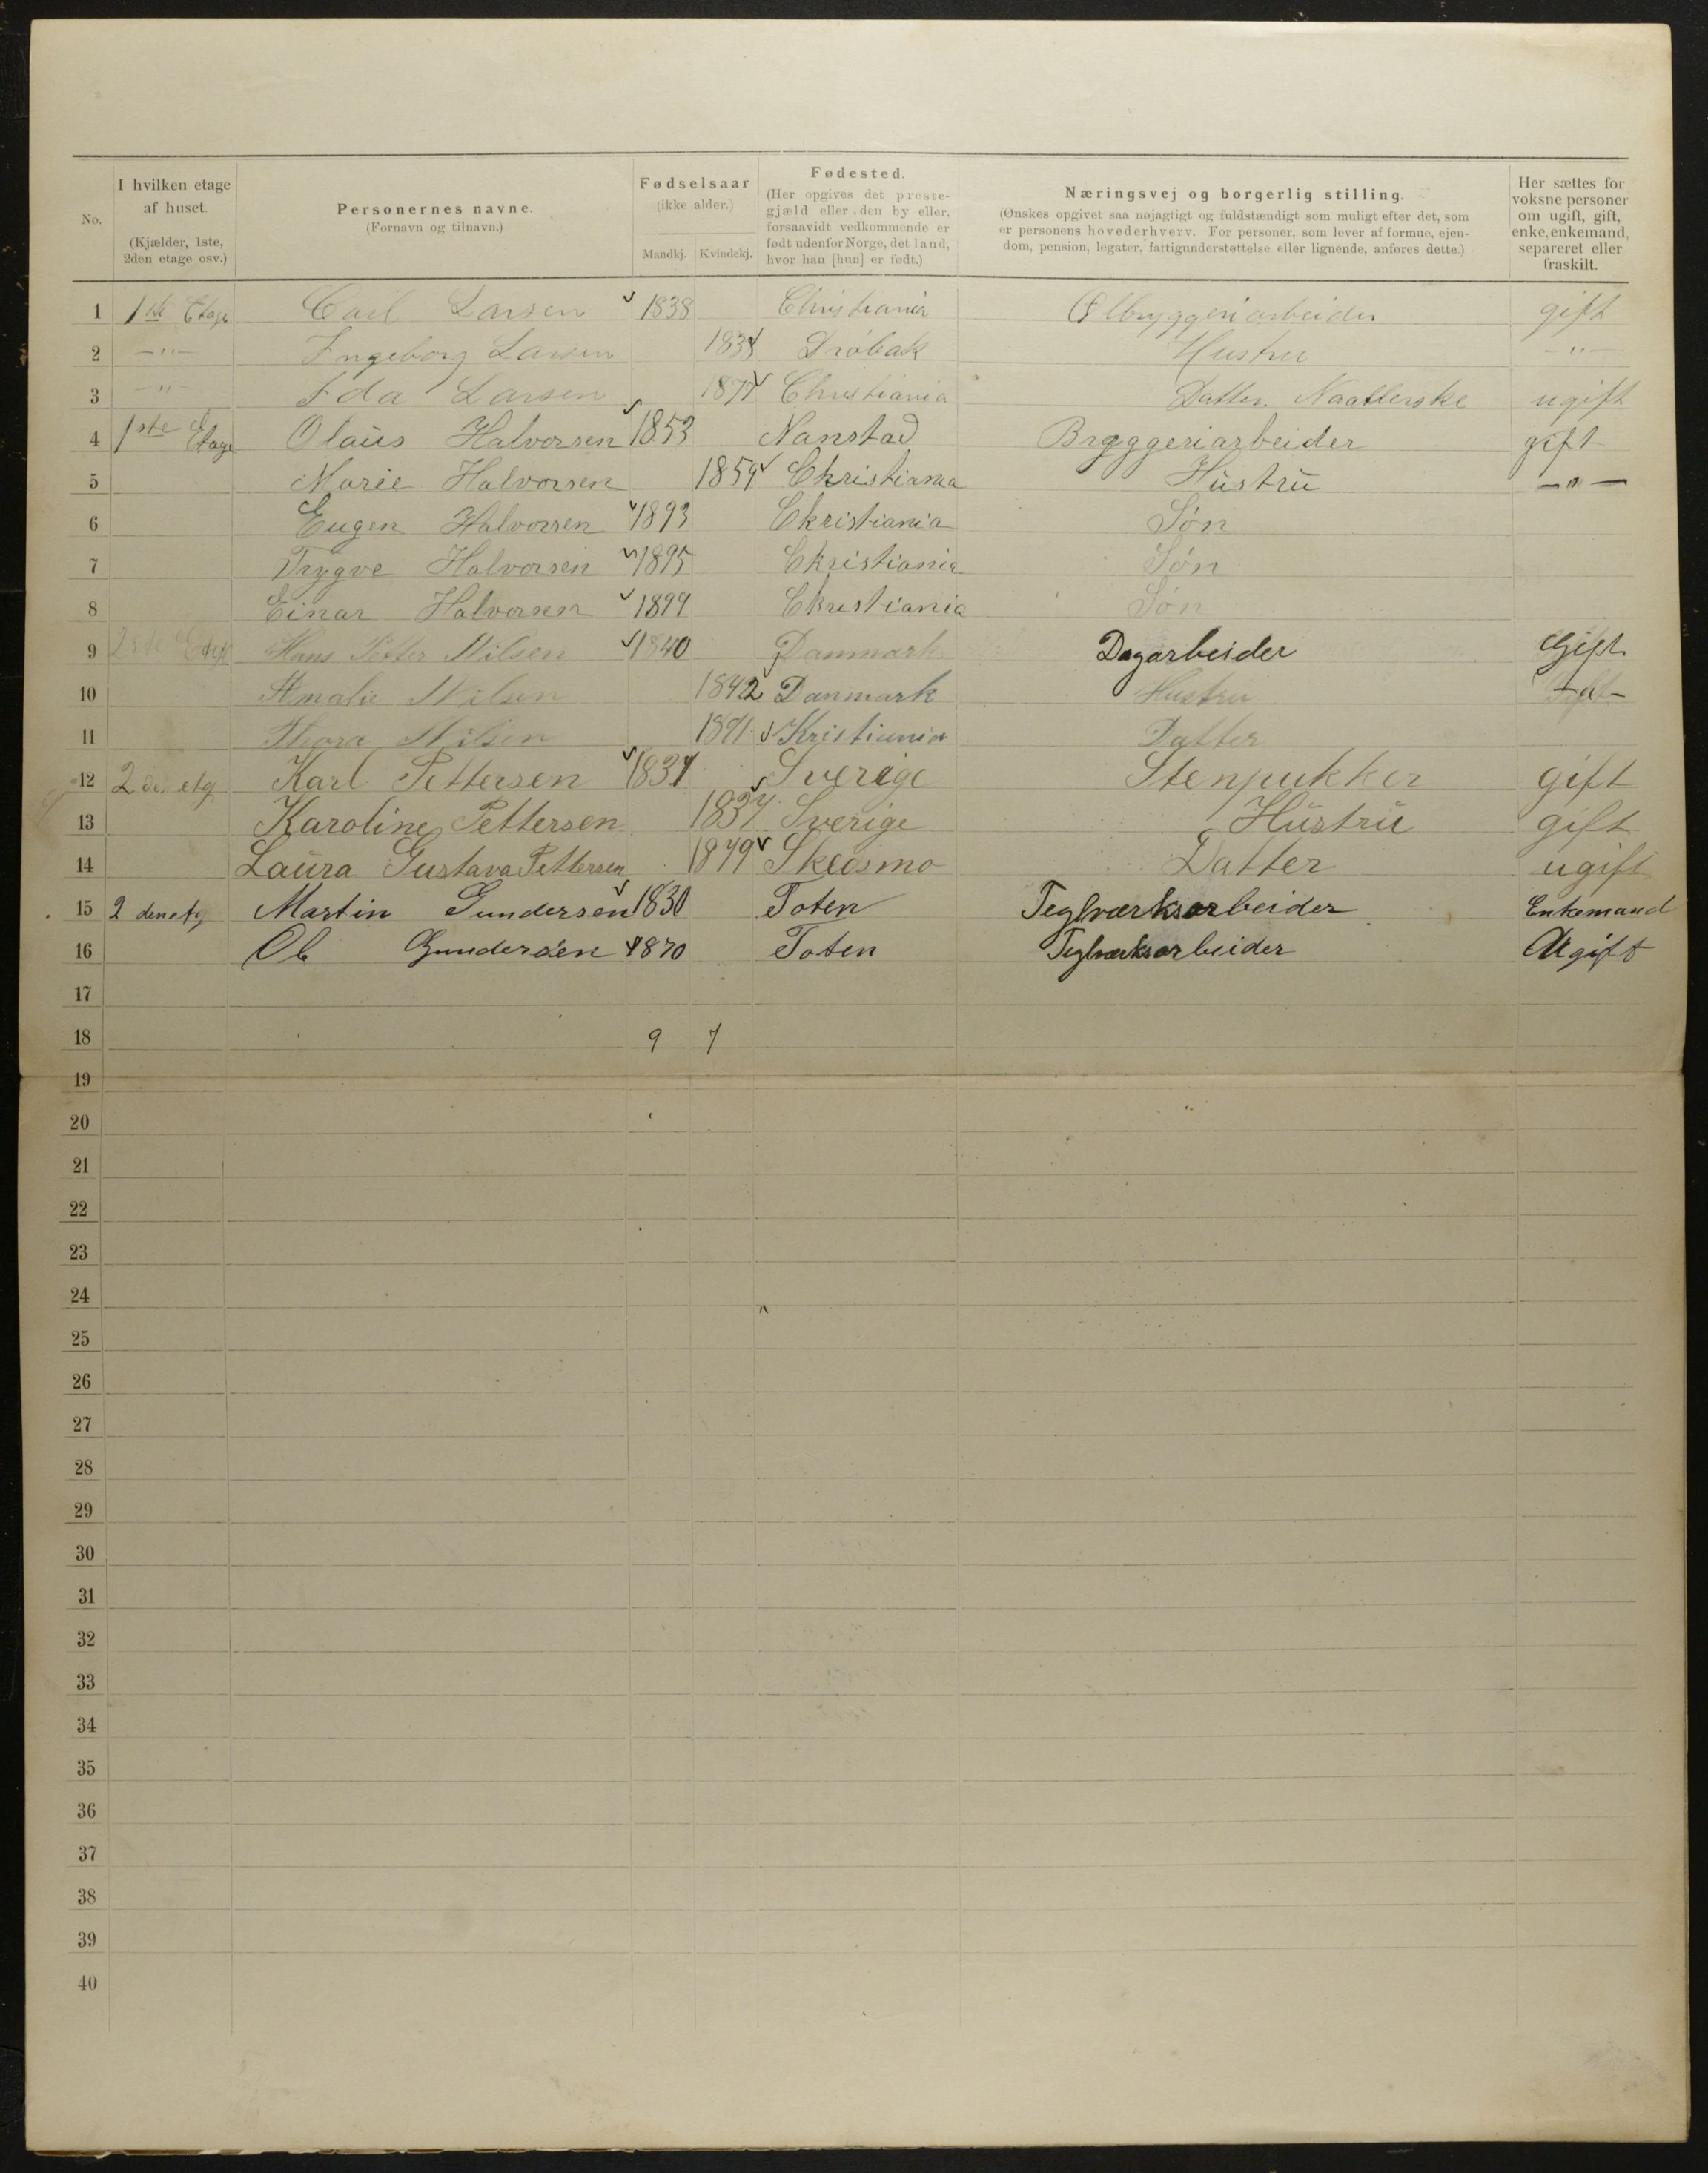 No.
I hvilken etage af huset. (Kjælder, 1ste, 2den etage osv.)
Personernes navne. (Fornavn og tilnavn.)
Fødselsaar (ikke alder.)
Mandkj. Kvindekj.
Fødested.
(Her opgives det preste-
gjæld eller den by eller,
forsaavidt vedkommende er
født udenfor Norge, det land,
hvor han [hun] er født.)
Næringsvej og borgerlig stilling.
(Ønskes opgivet saa nøjagtigt og fuldstændigt som muligt efter det, som
er personens hovederhverv. For personer, som lever af formue, ejen-
dom, pension, legater, fattigunderstøttelse eller lignende, anføres dette.)
Her sættes for
voksne personer
om ugift, gift,
enke, enkemand,
separeret eller
fraskilt.
1 1ste Etage Carl Larsen 1838 Christiania Ølbryggeriarbeider gift
2 —"— Ingeborg Larsen Drøbak Hustru —"—
3 —"— Ida Larsen Christiania Datter. Naatlerske ugift
4 1ste Etage Olaüs Halvorsen 1853 Nanstad Bryggeriarbeider gift
5 Marie Halvorsen 1859 Christiania Hüstrü —"—
6 Eugen Halvorsen 1893 Christiania Søn
7 Trygve Halvorsen 1895 Christiania Søn
8 Einar Halvorsen 1899 Christiania Søn
9 2 Etg Hans Petter Nilsen 1840 Danmark Dagarbeider Gift
10 Amalie Nilsen 1842 Danmark Hustru —"—
11 Thora Nilsen 1891 Kristiania Datter
12 2 den etg Karl Pettersen Sverige Stenpukker gift
13 Karoline Pettersen 1837 Sverige Hüstrü gift
14 Laüra Gustava Pettersen 1879 Skedsmo Datter ugift
15 2 den etg Martin Gundersen 1830 Toten Teglværksarbeider Enkemand
16 Ole Gundersen 1870 Toten Teglværksarbeider Ugift
17
18 9 7
19
20
21
22
23
24
25
26
27
28
29
30
31
32
33
34
35
36
37
38
39
40